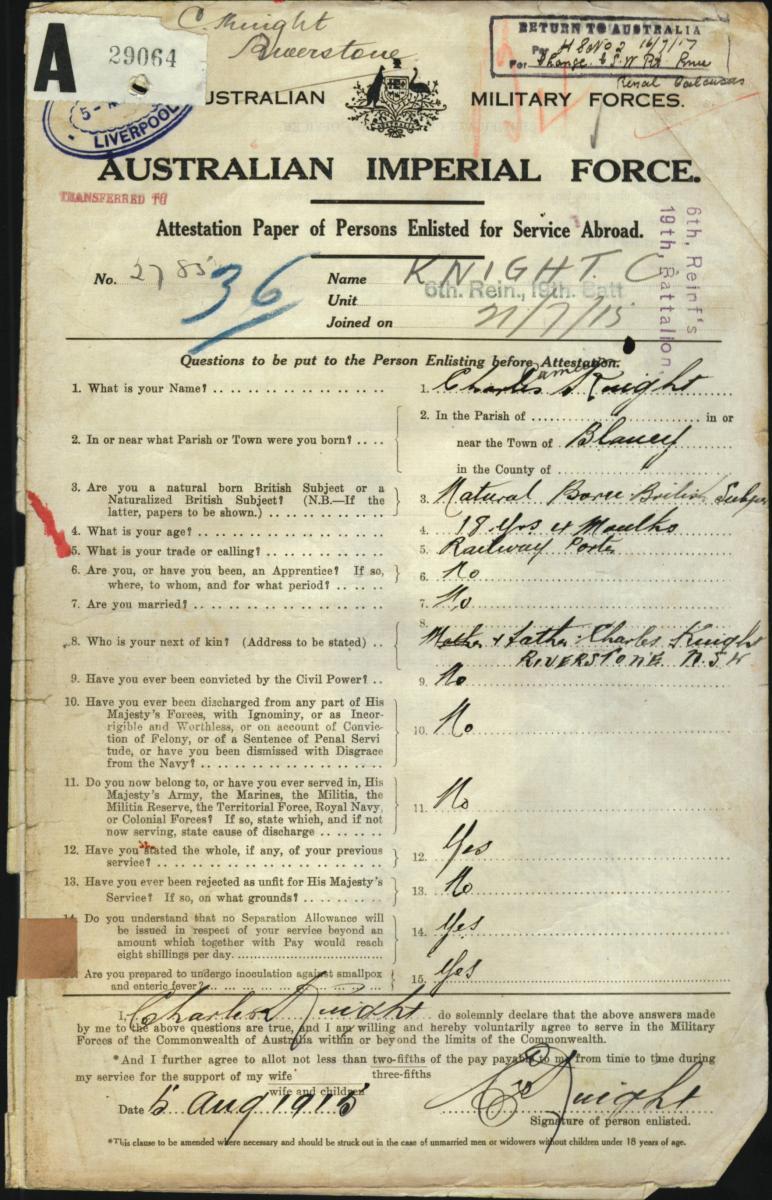 C. Knight
Riverstone
A 29064
RETURN TO AUSTRALIA
Per H S No 2 16/7/17
For Change N.S.W.
Renal Calculus
LIVERPOOL
AUSTRALIAN MILITARY FORCES.
AUSTRALIAN IMPERIAL FORCE.
TRANSFERRED TO
Attestation Paper of Persons Enlisted for Service Abroad.
6th, Reinf's
19th, Battalion
No. 2785 Name KNIGHT. C
36
Unit 6th. Rein., 19th. Batt
Joined on 21/7/15
Questions to be put to the Person Enlisting before Attestation.
1. What is your Name? 1. Charles James Knight
2. In or near what Parish or Town were you born? 2. In the Parish of in or
near the Town of Blaney
in the County of
3. Are you a natural born British Subject or a
Naturalized British Subject? (N.B.—If the
latter, papers to be shown.) 3. Natural Born British Subject
4. What is your age? 4. 18 yrs 4 Months
5. What is your trade or calling? 5. Railway Porter
6. Are you, or have you been, an Apprentice? If so,
where, to whom, and for what period? 6. No
7. Are you married? 7. No
8. Who is your next of kin? (Address to be stated) 8. Mother & father Charles Knight
RIVERSTONE N.S.W
9. Have you ever been convicted by the Civil Power? 9. No
10. Have you ever been discharged from any part of His
Majesty's Forces, with Ignominy, or as Incor-
rigible and Worthless, or on account of Convic-
tion of Felony, or of a Sentence of Penal Servi
tude, or have you been dismissed with Disgrace
from the Navy? 10. No
11. Do you now belong to, or have you ever served in, His
Majesty's Army, the Marines, the Militia, the
Militia Reserve, the Territorial Force, Royal Navy,
or Colonial Forces? If so, state which, and if not
now serving, state cause of discharge 11. No
12. Have you stated the whole, if any, of your previous
service? 12. Yes
13. Have you ever been rejected as unfit for His Majesty's
Service? If so, on what grounds? 13. No
14. Do you understand that no Separation Allowance will
be issued in respect of your service beyond an
amount which together with Pay would reach
eight shillings per day. 14. Yes
Are you prepared to undergo inoculation against smallpox
and enteric fever? 15. Yes
I, Charles Knight do solemnly declare that the above answers made
by me to the above questions are true, and I am willing and hereby voluntarily agree to serve in the Military
Forces of the Commonwealth of Australia within or beyond the limits of the Commonwealth.
*And I further agree to allot not less than two-fifths of the pay payable to me from time to time during
three-fifths
my service for the support of my wife
wife and children
Date 5 Aug 1915 Knight
Signature of person enlisted.
*This clause to be amended where necessary and should be struck out in the case of unmarried men or widowers without children under 18 years of age.